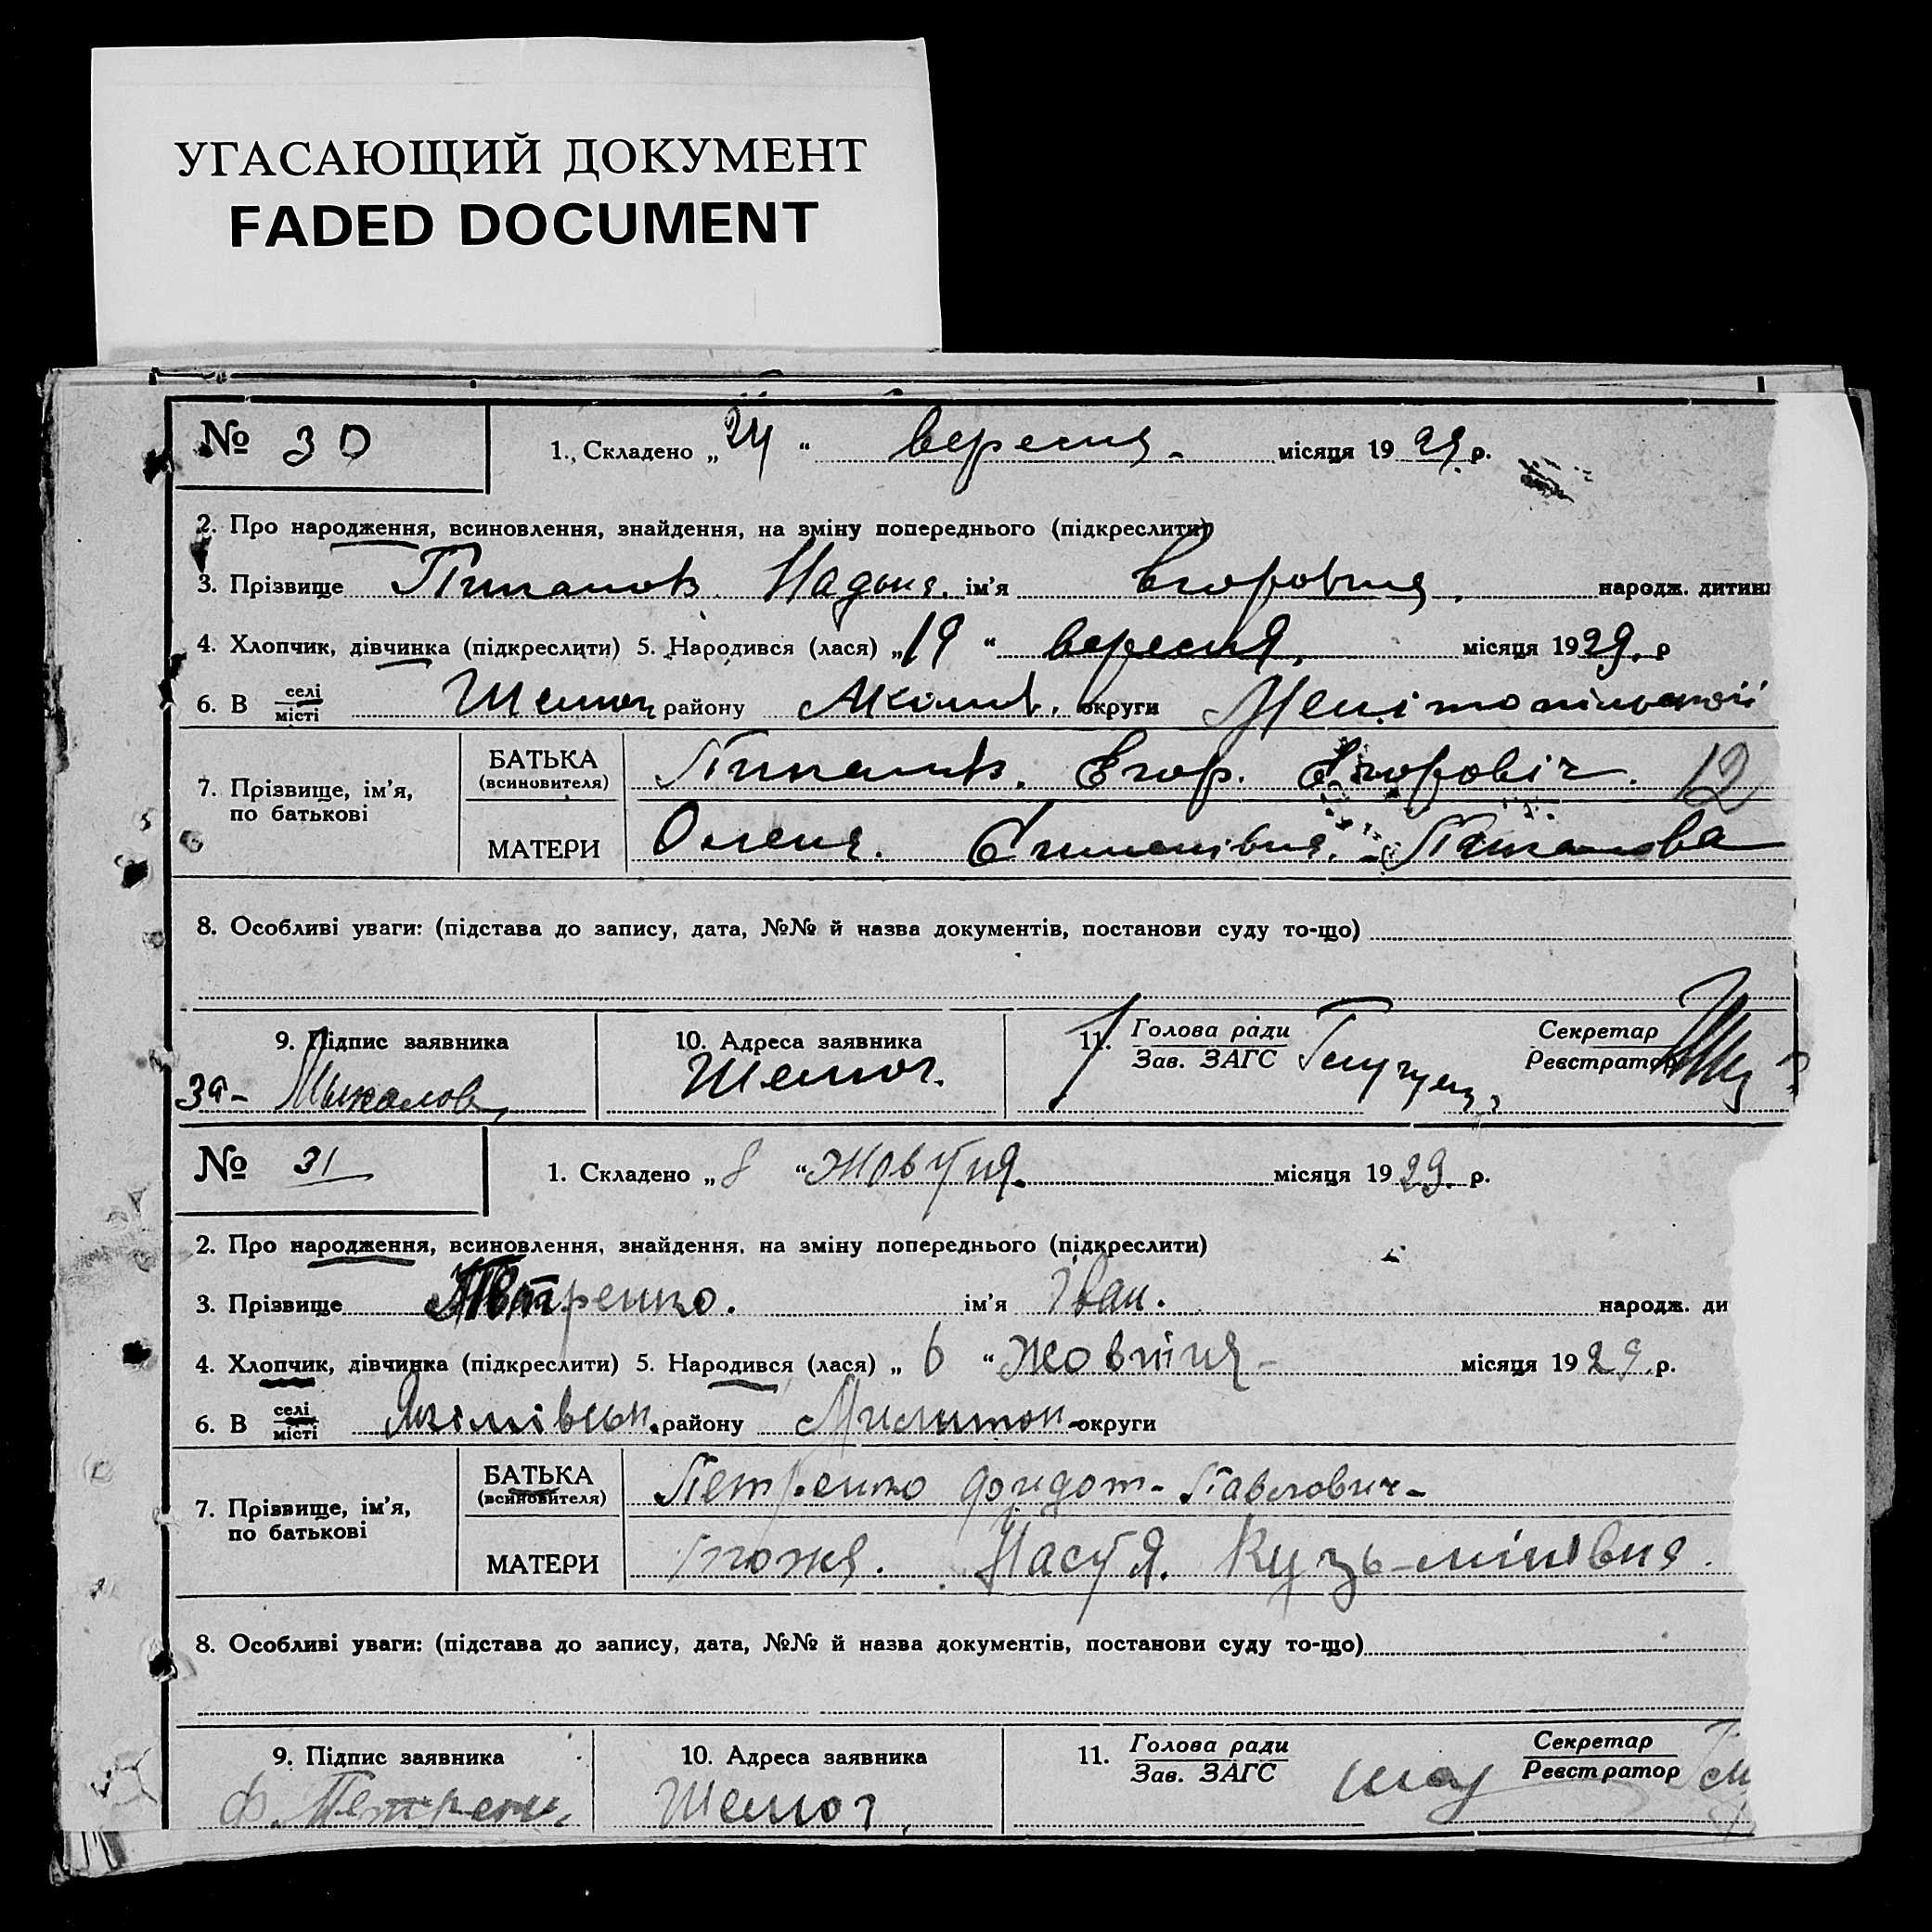 УГАСАЮЩИЙ ДОКУМЕНТ
FADED DOCUMENT
№ 30
1. Складено „24“ вересня месяця 1929 р.
2. Про народження, всиновлення, знайдення, на зміну попереднього (підкреслити)
3. Прізвище Надыня ім'я Егоровна народж. дитини
4. Хлопчик, дівчинка (підкреслити) 5. Народився (лася) „19“ вересня місяця 1929 р
6. В селі місті Шелюг району Якимів. округи Мелітопільської
7. Прізвище, ім'я, по батькові
БАТЬКА (всиновителя) Егор. Егоровіч. 12
МАТЕРИ Олена.
8. Особливі уваги: (підстава до запису, дата, №№ й назва документів, постанови суду то-що)
9. Підпис заявника 10. Адреса заявника 11. Голова ради Зав. ЗАГС Секретар Реєстратор
За- Шелюг.
№ 31
1. Складено „8“ Жовтня месяця 1929. р.
2. Про народження, всиновлення, знайдення, на зміну попереднього (підкреслити)
3. Прізвище Петренко. ім'я Іван. народж. ди
4. Хлопчик, дівчинка (підкреслити) 5. Народився (лася) „6“ Жовтня місяця 1929 р.
6. В селі місті Якімівськ. району Милитоп- округи
7. Прізвище, ім'я, по батькові
БАТЬКА (всиновителя) Петренко Фидот- Павлович-
МАТЕРИ тожя. Настя. Кузьмінівня.
8. Особливі уваги: (підстава до запису, дата, №№ й назва документів, постанови суду то-що)
9. Підпис заявника 10. Адреса заявника 11. Голова ради Зав. ЗАГС Секретар Реєстратор
Ф. Петренк Шелюг